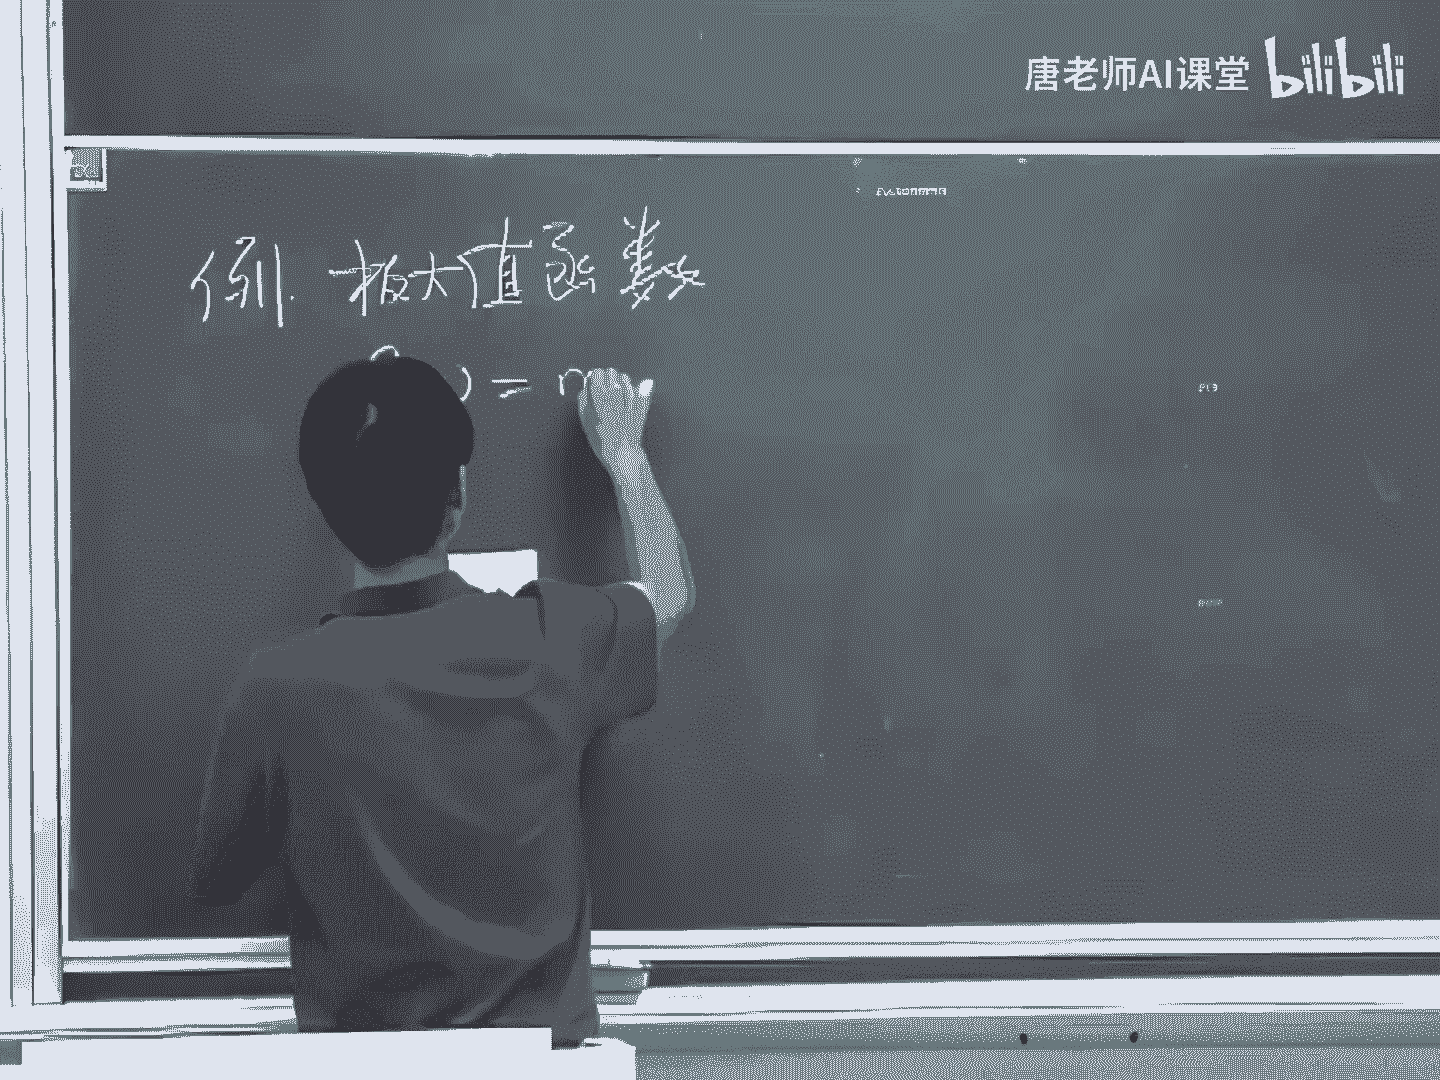 唐老师AI课堂 bilibili
例. 极大值函数
) =